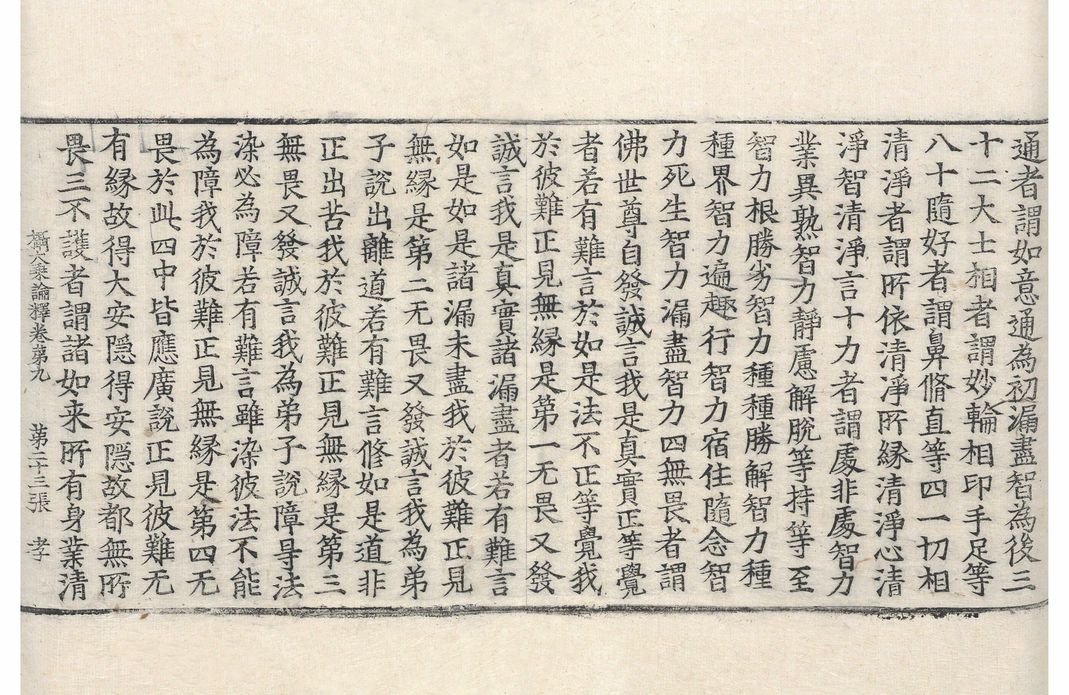 通者謂如意通為初漏盡智為後三
十二大士相者謂妙輪相印手足等
八十隨好者謂鼻脩直等四一切相
清淨者謂所依清淨所縁清淨心清
淨智清淨言十力者謂處非處智力
業異熟智力靜慮解脫等持等至
智力根勝劣智力種種勝解智力種
種界智力遍趣行智力宿住隨念智
力死生智力漏盡智力四無畏者謂
佛世尊自發誠言我是真實正等覺
者若有難言於如是法不正等覺我
於彼難正見無縁是第一无畏又發
誠言我是真實諸漏盡者若有難言
如是如是諸漏未盡我於彼難正見
無縁是第二无畏又發誠言我為弟
子說出離道若有難言修如是道非
正出苦我於彼難正見無縁是第三
無畏又發誠言我為弟子說障㝵法
染必為障若有難言雖染彼法不能
為障我於彼難正見無縁是第四无
畏於此四中皆應廣說正見彼難无
有縁故得大安隱得安隱故都無所
畏三不護者謂諸如来所有身業清
攝大乘論釋卷第九 第二十三張 孝